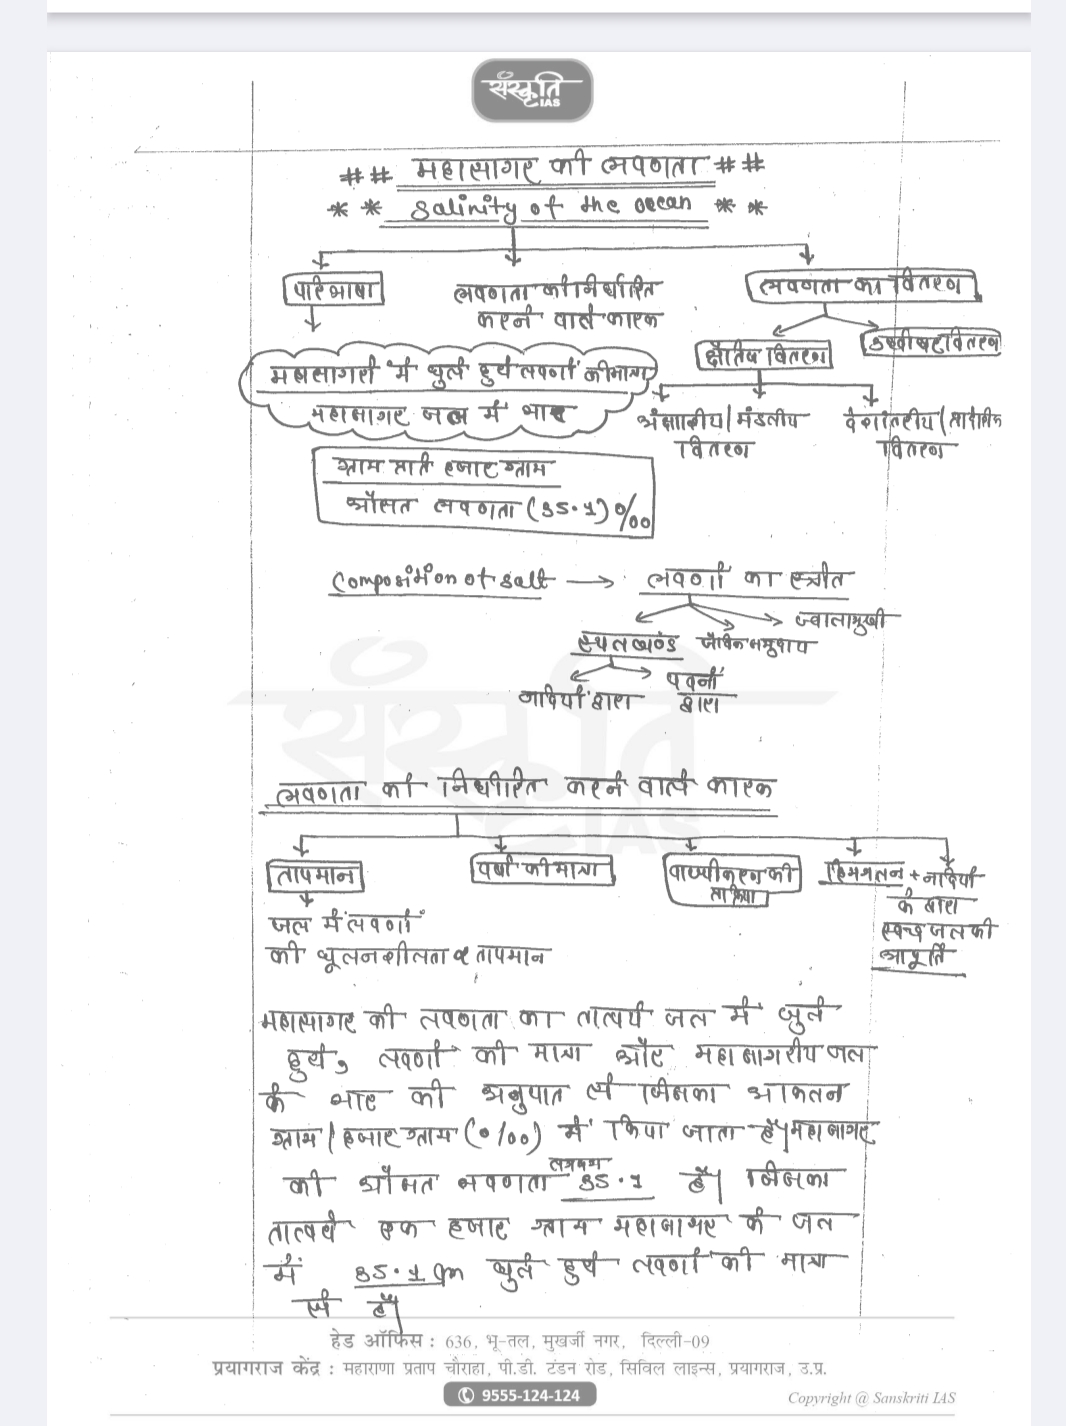 संस्कृति
IAS
## महासागर की लवणता ##
** Salinity of the ocean **
परिभाषा
लवणता को निर्धारित
करने वाले कारक
लवणता का वितरण
क्षैतिज वितरण
उर्ध्वाधर वितरण
महासागरों में घुले हुये लवणों की मात्रा
महासागर जल में भार
अक्षांशीय/मंडलीय
वितरण
देशांतरीय/प्रादेशिक
वितरण
ग्राम प्रति हजार ग्राम
औसत लवणता (35.1)०/००
Composition of salt → लवणों का स्त्रोत
ज्वालामुखी
स्थलखण्ड
जैविक समुदाय
नदियों द्वारा
पवनों
द्वारा
लवणता को निर्धारित करने वाले कारक
तापमान
वर्षा की मात्रा
वाष्पीकरण की
प्रक्रिया
हिमगलन + नदियों
के द्वारा
स्वच्छ जल की
आपूर्ति
जल में लवणों
की घूलनशीलता ∝ तापमान
महासागर की लवणता का तात्पर्य जल में घुले
हुये, लवणों की मात्रा और महासागरीय जल
के भार की अनुपात से जिसका आकलन
ग्राम/हजार ग्राम (०/००) में किया जाता है। महासागर
की औसत लवणता लगभग 35.1 है। जिसका
तात्पर्य एक हजार ग्राम महासागर के जल
में 35.1 gm घुले हुये लवणों की मात्रा
से है।
संस्कृति
IAS
हेड ऑफिस : 636, भू-तल, मुखर्जी नगर, दिल्ली-09
प्रयागराज केंद्र : महाराणा प्रताप चौराहा, पी.डी. टंडन रोड, सिविल लाइन्स, प्रयागराज, उ.प्र.
9555-124-124
Copyright @ Sanskriti IAS